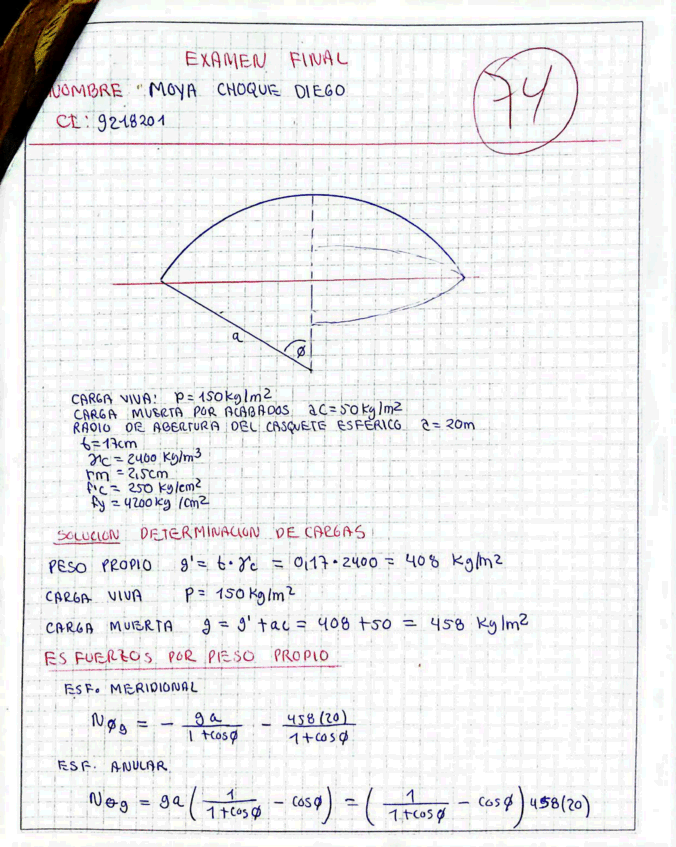 EXAMEN FINAL
NOMBRE: MOYA CHOQUE DIEGO
74
CI: 9218201
a
ø
CARGA VIVA: P=150 kg/m2
CARGA MUERTA POR ACABADOS ac=50 kg/m2
RADIO DE ABERTURA DEL CASQUETE ESFERICO a=20m
t=17cm
γc=2400 kg/m3
rm=2,5cm
f'c=250 kg/cm2
fy=4200kg/cm2
SOLUCION DETERMINACION DE CARGAS
PESO PROPIO g'=t·γc=0,17·2400=408 Kg/m2
CARGA VIVA P=150kg/m2
CARGA MUERTA g=g'+ac=408+50=458 Kg/m2
ESFUERZOS POR PESO PROPIO
ESF. MERIDIONAL
Nøg = - ga/(1+cosø) - 458(20)/(1+cosø)
ESF. ANULAR
Nθg = ga(1/(1+cosø) - cosø) = (1/(1+cosø) - cosø)458(20)